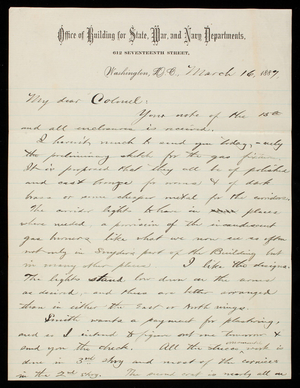 Office of Building for State, War, and Navy Departments,
612 SEVENTEENTH STREET,
Washington, D.C., March 16, 1887
My dear Colonel:
Your note of the 15th
and all enclosures is received.
I herewith send to you today, only
the preliminary sketch for the gas
It is proposed that they all be of polished
and cast bronze for rooms & of dark
brass or some cheaper metal for the corridors.
The corridor lights to have in place
where needed, a provision of the incandescent
gas burners, like what we now see so often
not only in part of the Building but
in many other places. I like the designs.
The lights stand low down on the arms
as desired, and these are better arranged
than in either the East or North wings.
Smith wants a payment for plastering,
and so I intend to figure out an amount &
send you the check. All the work is
done in 3rd story and most of the cornices
in the 2nd story. The coat is nearly all on